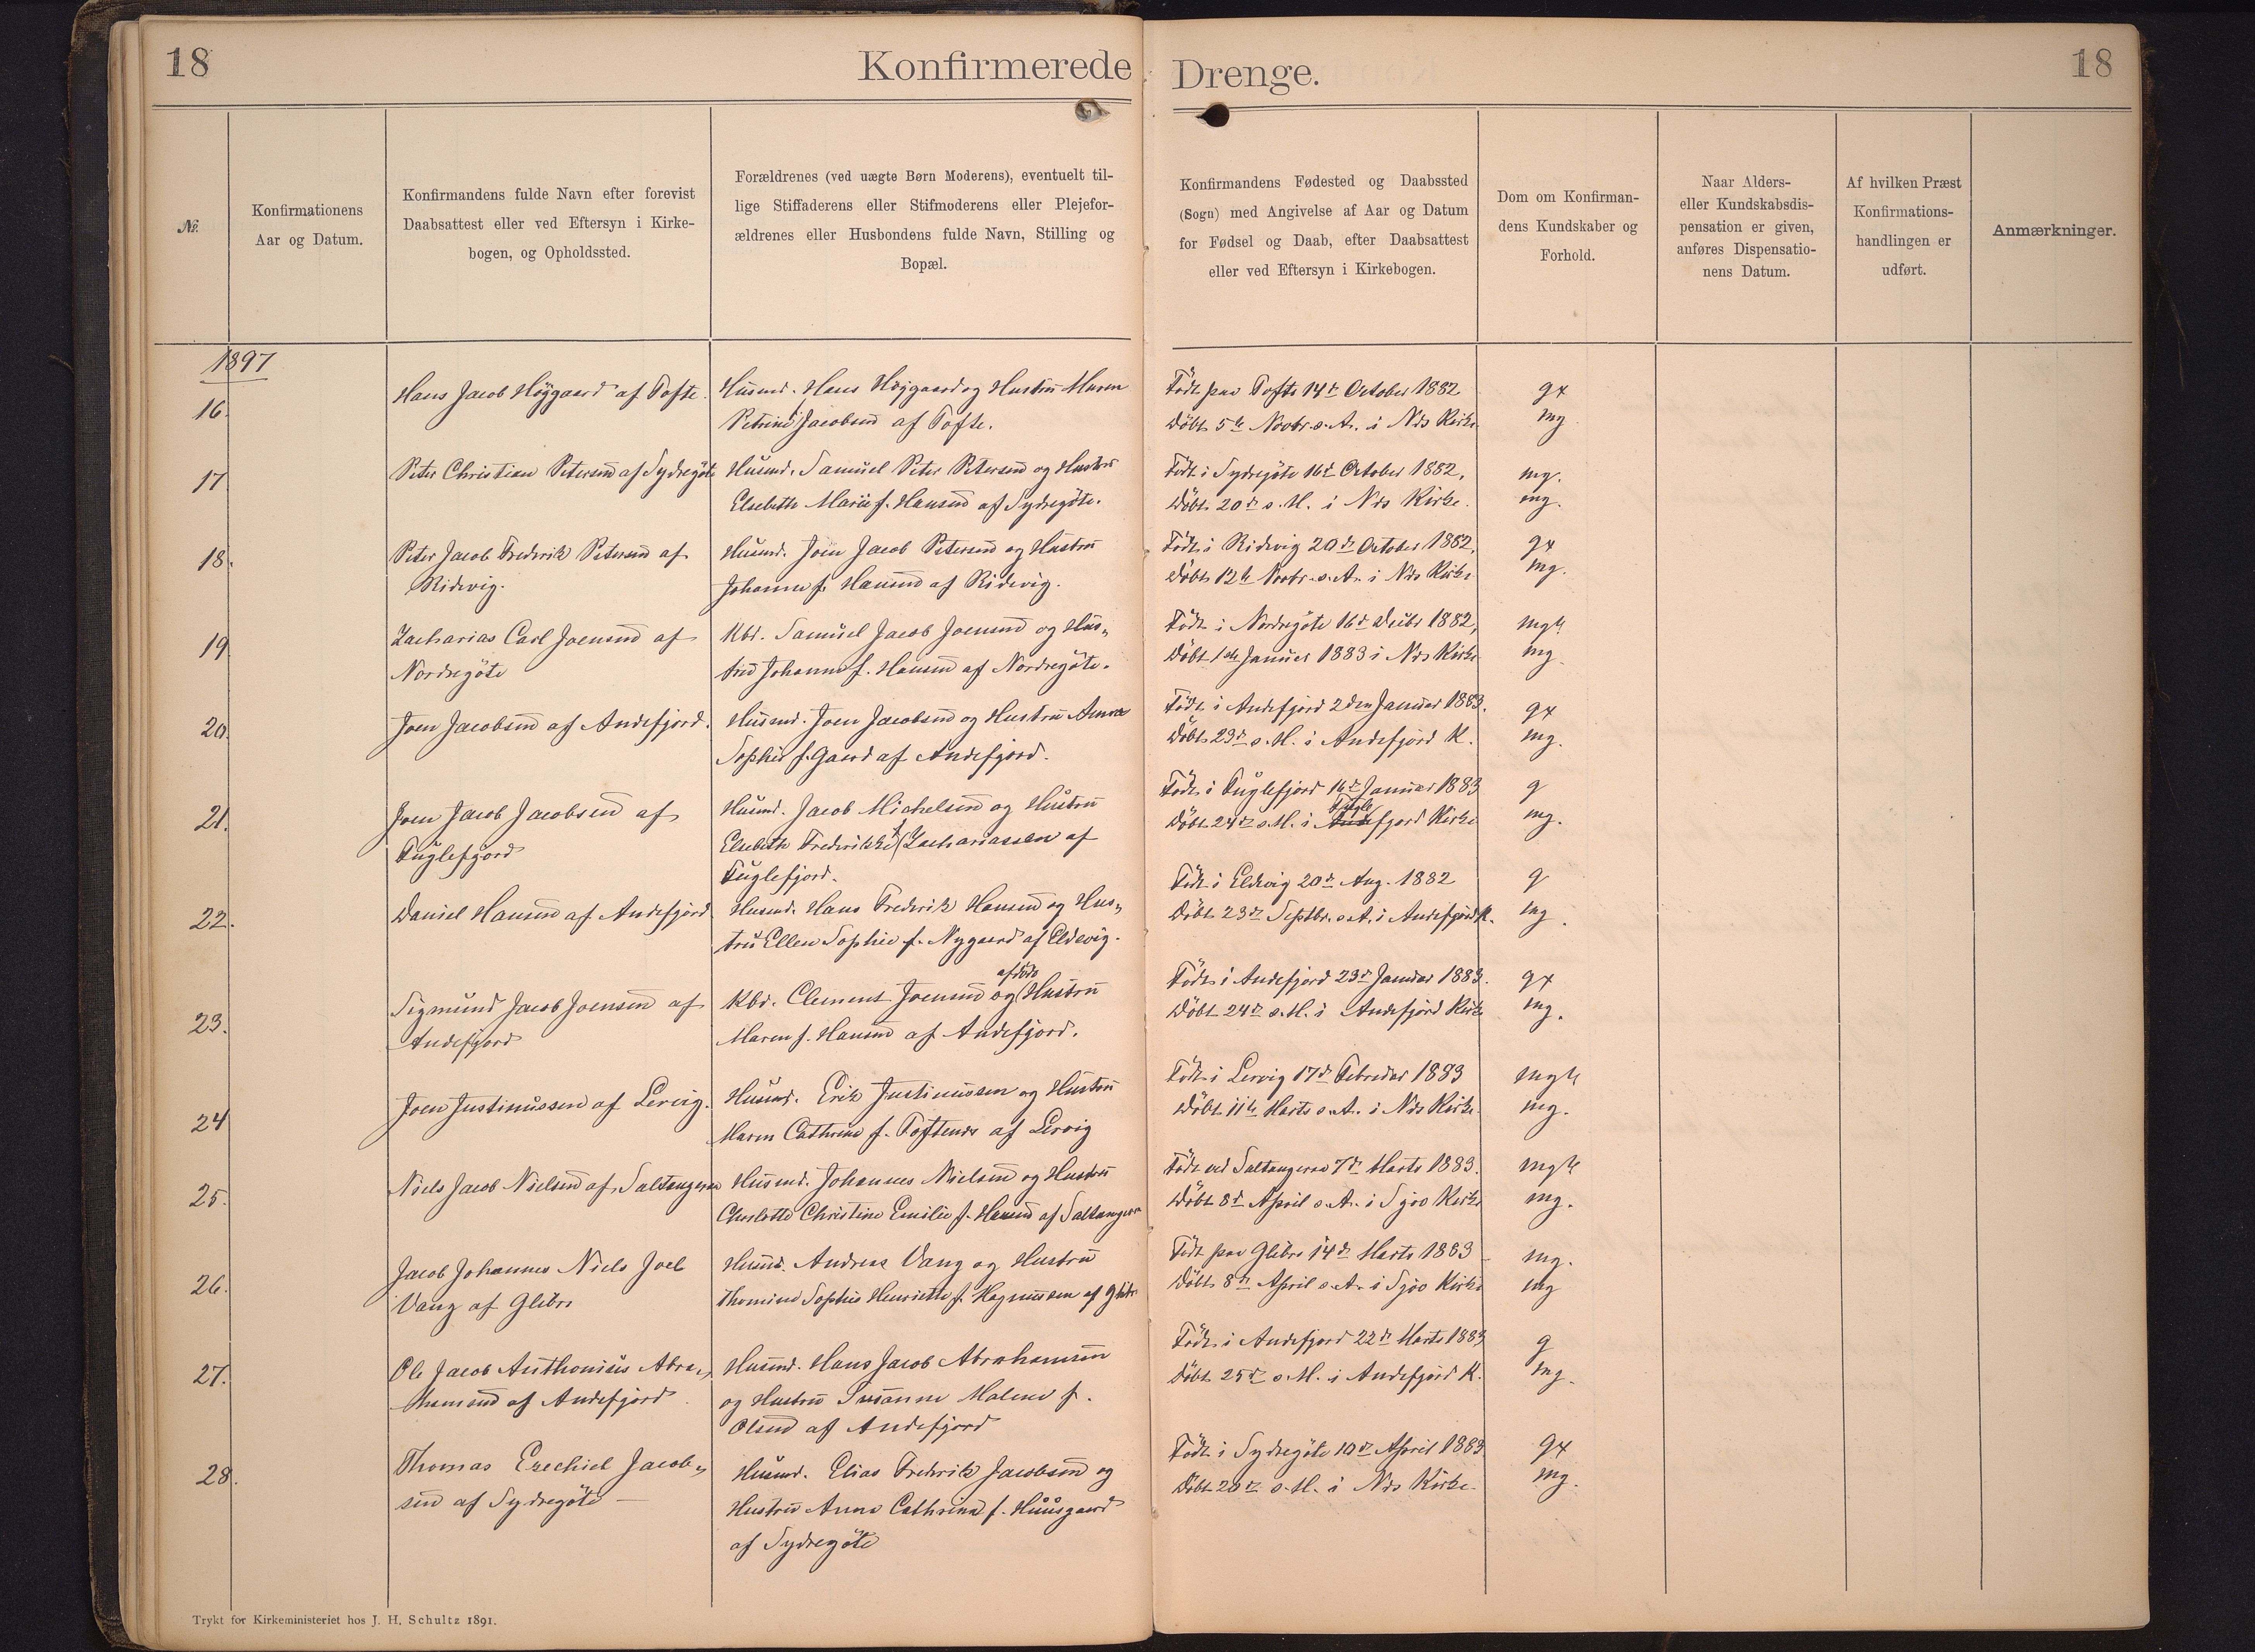 18
Konfirmerede
Drenge.
18
No.
Konfirmationens
Aar og Datum.
Konfirmandens fulde Navn efter forevist
Daabsattest eller ved Eftersyn i Kirke-
bogen, og Opholdssted.
Forældrenes (ved uægte Børn Moderens), eventuelt til-
lige Stiffaderens eller Stifmoderens eller Plejefor-
ældrenes eller Husbondens fulde Navn, Stilling og
Bopæl.
Konfirmandens Fødested og Daabssted
(Sogn) med Angivelse af Aar og Datum
for Fødsel og Daab, efter Daabsattest
eller ved Eftersyn i Kirkebogen.
Dom om Konfirman-
dens Kundskaber og
Forhold.
Naar Alders-
eller Kundskabsdis-
pensation er given,
anføres Dispensatio-
nens Datum.
Af hvilken Præst
Konfirmations-
handlingen er
udført.
Anmærkninger.
1897
16.
Hans Jacob Höygaard af Tofte.
Husmd. Hans Höygaard og Hustru Maren
Petrine f. Jacobsen af Tofte.
Födt paa Tofte 14de October 1882
Döbt 5te Novbr. s. A. i Nds Kirke
gx
mg
17
Peter Christian Petersen af Sydregöte
Husmd. Samuel Peter Petersen og Hustru
Elsebeth Marie f. Hansen af Sydregöte.
Födt i Sydregöte 16de October 1882,
Döbt 20de s. M. i Nds Kirke.
mg.
mg.
18.
Peter Jacob Frederik Petersen af
Ridevig.
Husmd. Joen Jacob Petersen og Hustru
Johanne f. Hansen af Ridevig.
Födt i Ridevig 20de October 1882,
Döbt 12te Novbr. s. A. i Nds Kirke
gx
mg.
19.
Zacharias Carl Joensen af
Nordregöte
Kbd. Samuel Jacob Joensen og Hus-
tru Johanne f. Hansen af Nordregöte.
Födt i Nordregöte 16de Decbr 1882,
Döbt 1ste Januar 1883 i Nds Kirke
mg
mg.
20.
Joen Jacobsen af Andefjord.
Husmd. Joen Jacobsen og Hustru Anna
Sophie f. Gaard af Andefjord.
Födt i Andefjord 2den Januar 1883.
Döbt 23de s. M. i Andefjord K.
gx
mg.
21.
Joen Jacob Jacobsen af
Fuglefjord
Husmd. Jacob Michelsen og Hustru
Elsebeth Frederikke f. Zachariassen af
Fuglefjord.
Födt i Fuglefjord 16de Januar 1883
Döbt 24de s. M. i Fuglefjord Kirke
g
mg.
22.
Daniel Hansen af Andefjord
Husmd. Hans Frederik Hansen og Hus-
tru Ellen Sophie f. Nygaard af Eldevig.
Födt i Eldevig 20de Aug. 1882
Döbt 23de Septbr. s. A. i Andefjord K.
g
mg.
23.
Sigmund Jacob Joensen af
Andefjord
Kbd. Clement Joensen og afdöde Hustru
Maren f. Hansen af Andefjord.
Födt i Andefjord 23de Januar 1883.
Döbt 24de s. M. i Andefjord Kirke
gx
mg.
24
Joen Justinussen af Lervig.
Husmd. Erik Justinussen og Hustru
Maren Cathrine f. Toftenes af Lervig
Födt i Lervig 17de Februar 1883
Döbt 11te Marts s. A. i Nds Kirke.
mg
mg.
25.
Niels Jacob Nielsen af Saltangeraa
Husmd. Johannes Nielsen og Hustru
Charlotte Christine Emilie f. Hansen af Saltangeraa
Födt ved Saltangeraa 7de Marts 1883.
Döbt 8de April s. A. i Sjov Kirke
mg
mg.
26.
Jacob Johannes Niels Joel
Vang af Glibre
Husmd. Andreas Vang og Hustru
Thomine Sophie Henriette f. Magnussen af Glibre
Födt paa Glibre 14de Marts 1883
Döbt 8de April s. A. i Sjov Kirke
mg.
mg
27.
Ole Jacob Anthonius Abra-
hamsen af Andefjord.
Husmd. Hans Jacob Abrahamsen
og Hustru Susanne Malene f.
Olsen af Andefjord
Födt i Andefjord 22de Marts 1883
Döbt 25de s. M. i Andefjord K.
g
mg.
28.
Thomas Ezechiel Jacob-
sen af Sydregöte
Husmd. Elias Frederik Jacobsen og
Hustru Anna Cathrina f. Huusgaard
af Sydregöte
Födt i Sydregöte 10de April 1883
Döbt 20de s. M. i Nds Kirke.
gx
mg.
Trykt for Kirkeministeriet hos J. H. Schultz 1891.